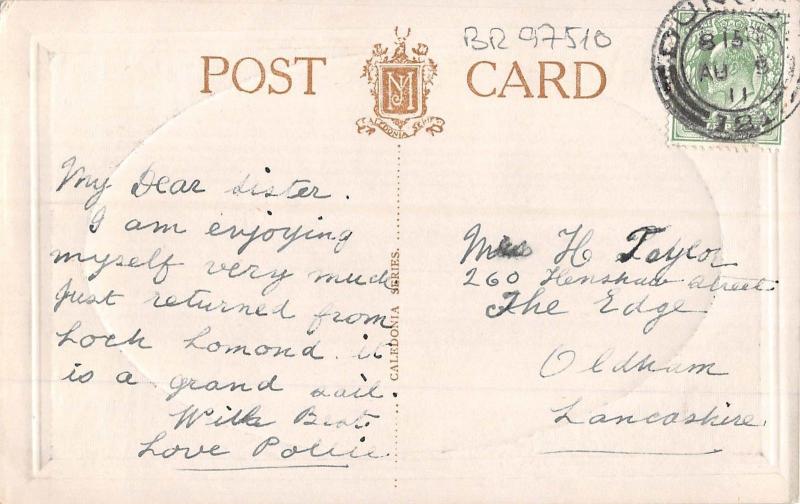 BR 97510
POST CARD
MJ
CALEDONIA SERIES
8 15
AU 9
11
181
My Dear Sister.
I am enjoying
myself very much
Just returned from
Loch Lomond. it
is a grand sail.
With Best
Love Pollie
CALEDONIA SERIES.
H Taylor
260 Henshaw Street
The Edge
Oldham
Lancashire.